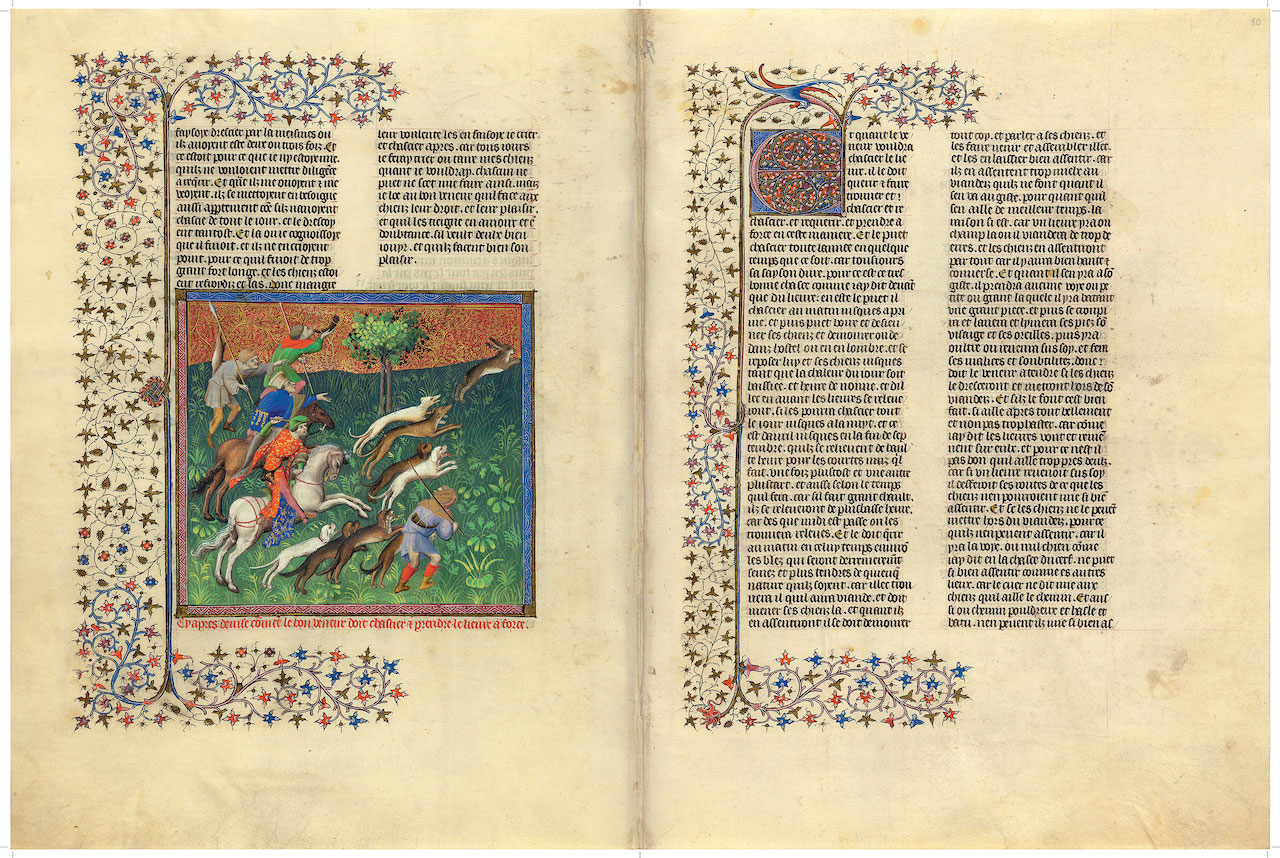 faysoye drescier par la mesmes ou
ilz auoyent este deux ou trois foiz. Et
ce estoit pour ce que ie ny estoye mie.
quilz ne vouloient mettre diligēce
a reqrir. Et que ilz me ouoyent ⁊ me
veoyent. ilz se mettoyent en besoigne
aussi appertement cōe silz nauoyent
chascie de tout le iour. et le dressoy
ent tantost. Et la ou ie cognoissoye
que il finoit. et ilz ne encreoyent
point. pour ce quil fuioit de trop
grant fort longe. et les chiens estoi
ent refroydiz et las. donc mangre
leur voulente les en faisoye ie crier
et chascier apres. car tous iours
ie feray crier ou taire mes chiens
quant ie vouldray. chascun ne
puet ne scet mie faire ainsi. mais
ie loe au bon veneur quil face aux
chiens leur droit. et leur plaisir.
et quil les tieigne en amour et ē
doubtance. sil veult deulx bien
iouyr. et quilz facent bien son
plaisir.
Cy apres deuise coment le bon veneur doit chascier ⁊ prendre le lieure a force.
80
Et quant le ve
neur vouldra
chascier le lie
ure. il le doit
querir ⁊ faire
trouuer et
chascier et re
chascier. et requerir. et prendre a
force en ceste maniere. Et le puet
chascier toute lannee en quelque
temps que ce soit. car tousiours
sa sayson dure. pour ce est ce tres
bonne chasce comme iay dit deuāt
que du lieure. en este le puet il
chascier au matin iusques a pri
me. et puis puet boire et desieu
ner ses chiens et demourer ou de
danz hostel ou en en lombre. et se
reposer luy et ses chiens iusques
tant que la chaleur du iour soit
baissiee. et lxure de nonne. et dil
lec en auant les lieures se releue
ront. si les pourra chascier tout
le iour iusques a la nuyt. et ce
est dauril iusques en la fin de sep
tembre. quilz se relieuent de haul
te heure pour les courtes nuiz. qͥl
fait. vne foiz plustost et vne autre
plustart. et aussi selon le temps
quil fera. car sil fait grant chault.
ilz se releueront de plus basse heure.
car des que midi est passe on les
trouuera releues. Et le doit qrir
au matin en celuy temps enuirō
les blez qui seront derrenierement
semez et plus tendres de quienq̄
nature quilz soyent. car illec trou
uera il quil aura viande. et doit
mener ses chiens la. et quant ilz
en assentiront il se doit demourer
tout coy. et parler a ses chiens. et
les faire venir et assembler illec.
et les en laissier bien assentir. car
ilz en assentent trop mielx au
viandeiz quilz ne font quant il
sen va au giste. pour quant quil
sen aille de meilleur temps. la
raison si est. car vn lieure yra ou
champ la ou il viandera de trop de
eures. et les chiens en assentiront
par tout car il y aura bien hante ⁊
conuerse. Et quant il sen yra a sō
giste. il prendra aucune voye ou pe
tite ou grant la quele il yra batant
vne grant piece. et puis se croupi
ra et lauera et lymera ses piez sō
visaige et ses oreilles. puis yra
oultre ou reuenir sus soy. et fera
ses malices et soubtilitez. donc
doit le veneur atendre si les chiens
le dresceront et metront hors de sō
viandeiz. Et silz le font cest bien
fait. si aille apres tout bellement
et non pas trop haster. car cōme
iay dit les lieures vont et reuiē
nent sur eulx. et pour ce nest il
pas bon quil aille trop pres deulz.
car si vn lieure reuenoit sus soy
il defferoit ses routes de ce que les
chiens nen pourroient mie si biē
assentir. Et se les chiens ne le peuēt
mettre hors du viandeiz. pour ce
quilz nen peuent assentir. car il
yra la voye. ou nul chien cōme
iay dit en la chasce du cerf. ne puet
si bien assentir comme es autres
lieux. car le cuer ne dit mie aux
chiens quil aille le chemin. Et aus
si ou chemin pouldreux et hasle et
batu. nen peuent ilz mie si bien as